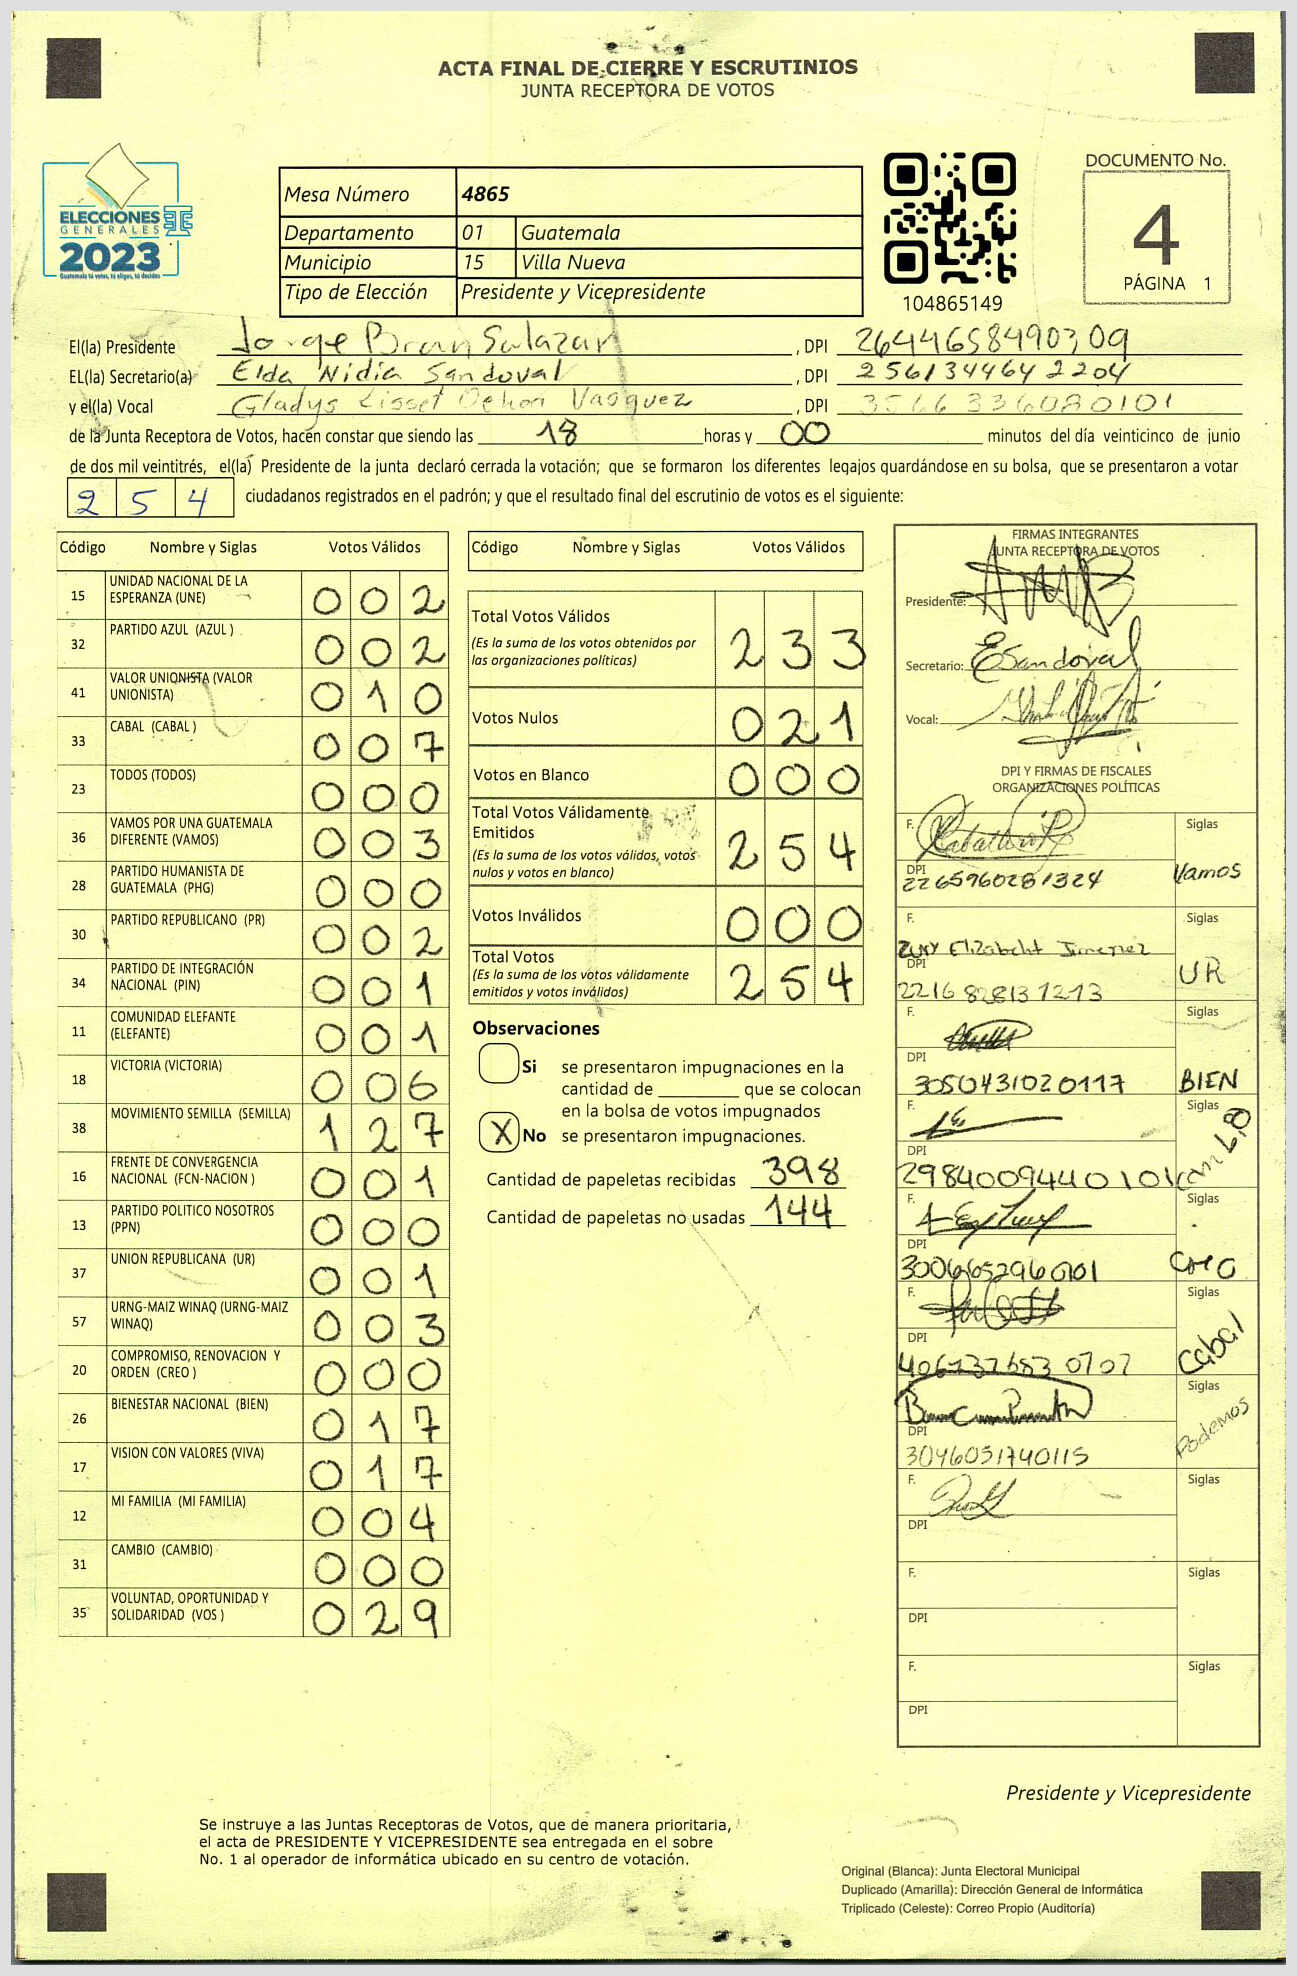 ACTA FINAL DE CIERRE Y ESCRUTINIOS
JUNTA RECEPTORA DE VOTOS
ELECCIONES
GENERALES
2023
Guatemala tú votas, tú eliges, tú decides
Mesa Número 4865
Departamento 01 Guatemala
Municipio 15 Villa Nueva
Tipo de Elección Presidente y Vicepresidente
104865149
DOCUMENTO No.
4
PÁGINA 1
El(la) Presidente Jorge Bran Salazar, DPI
EL(la) Secretario(a) Elda Nidia Sandoval, DPI 2561344642204
y el(la) Vocal Gladys Lisset Ochoa Vasquez, DPI 3566336080101
de la Junta Receptora de Votos, hacen constar que siendo las 18 horas y 00 minutos del día veinticinco de junio
de dos mil veintitrés, el(la) Presidente de la junta declaró cerrada la votación; que se formaron los diferentes legajos guardándose en su bolsa, que se presentaron a votar
254 ciudadanos registrados en el padrón; y que el resultado final del escrutinio de votos es el siguiente:
Código Nombre y Siglas Votos Válidos
15 UNIDAD NACIONAL DE LA ESPERANZA (UNE) 002
32 PARTIDO AZUL (AZUL ) 002
41 VALOR UNIONISTA (VALOR UNIONISTA) 010
33 CABAL (CABAL ) 007
23 TODOS (TODOS) 000
36 VAMOS POR UNA GUATEMALA DIFERENTE (VAMOS) 003
28 PARTIDO HUMANISTA DE GUATEMALA (PHG) 000
30 PARTIDO REPUBLICANO (PR) 002
34 PARTIDO DE INTEGRACIÓN NACIONAL (PIN) 001
11 COMUNIDAD ELEFANTE (ELEFANTE) 001
18 VICTORIA (VICTORIA) 006
38 MOVIMIENTO SEMILLA (SEMILLA) 127
16 FRENTE DE CONVERGENCIA NACIONAL (FCN-NACION ) 001
13 PARTIDO POLITICO NOSOTROS (PPN) 000
37 UNION REPUBLICANA (UR) 001
57 URNG-MAIZ WINAQ (URNG-MAIZ WINAQ) 003
20 COMPROMISO, RENOVACION Y ORDEN (CREO ) 000
26 BIENESTAR NACIONAL (BIEN) 017
17 VISION CON VALORES (VIVA) 017
12 MI FAMILIA (MI FAMILIA) 004
31 CAMBIO (CAMBIO) 000
35 VOLUNTAD, OPORTUNIDAD Y SOLIDARIDAD (VOS ) 029
Código Nombre y Siglas Votos Válidos
Total Votos Válidos 233
(Es la suma de los votos obtenidos por
las organizaciones políticas)
Votos Nulos 021
Votos en Blanco 000
Total Votos Válidamente
Emitidos 254
(Es la suma de los votos válidos, votos
nulos y votos en blanco)
Votos Inválidos 000
Total Votos 254
(Es la suma de los votos válidamente
emitidos y votos inválidos)
Observaciones
Si se presentaron impugnaciones en la
cantidad de ________ que se colocan
en la bolsa de votos impugnados
X No se presentaron impugnaciones.
Cantidad de papeletas recibidas 398
Cantidad de papeletas no usadas 144
FIRMAS INTEGRANTES
JUNTA RECEPTORA DE VOTOS
Presidente:
Secretario: ESandoval
Vocal:
DPI Y FIRMAS DE FISCALES
ORGANIZACIONES POLÍTICAS
F. Siglas
DPI 2265960281324 Vamos
F. Zury Elizabeht Jimenez Siglas
DPI 2216828131213 UR
F. Siglas
DPI 3050431020117 BIEN
F. Siglas
DPI 2984009440101
F. Siglas
DPI 30066652960101 Creo
F. Siglas
DPI Cabal
F. Siglas
DPI 3046051740115 Podemos
F. Siglas
DPI
F. Siglas
DPI
F. Siglas
DPI
Presidente y Vicepresidente
Se instruye a las Juntas Receptoras de Votos, que de manera prioritaria,
el acta de PRESIDENTE Y VICEPRESIDENTE sea entregada en el sobre
No. 1 al operador de informática ubicado en su centro de votación.
Original (Blanca): Junta Electoral Municipal
Duplicado (Amarilla): Dirección General de Informática
Triplicado (Celeste): Correo Propio (Auditoría)